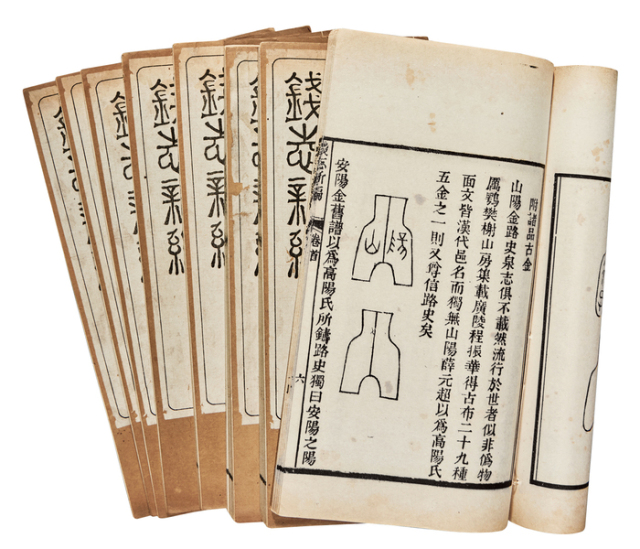 附諸品古金
山陽金路史泉志俱不載然流行於世者似非僞物
厲鶚樊榭山房集載廣陵程振華得古布二十九種
面文皆漢代邑名而獨無山陽薛元超以爲高陽氏
五金之一則又尊信路史矣
安陽金舊譜以爲高陽氏所鑄路史獨曰安陽之陽
錢志新編
卷首
六
錢志新編
錢志新編
錢志新編
錢志新編